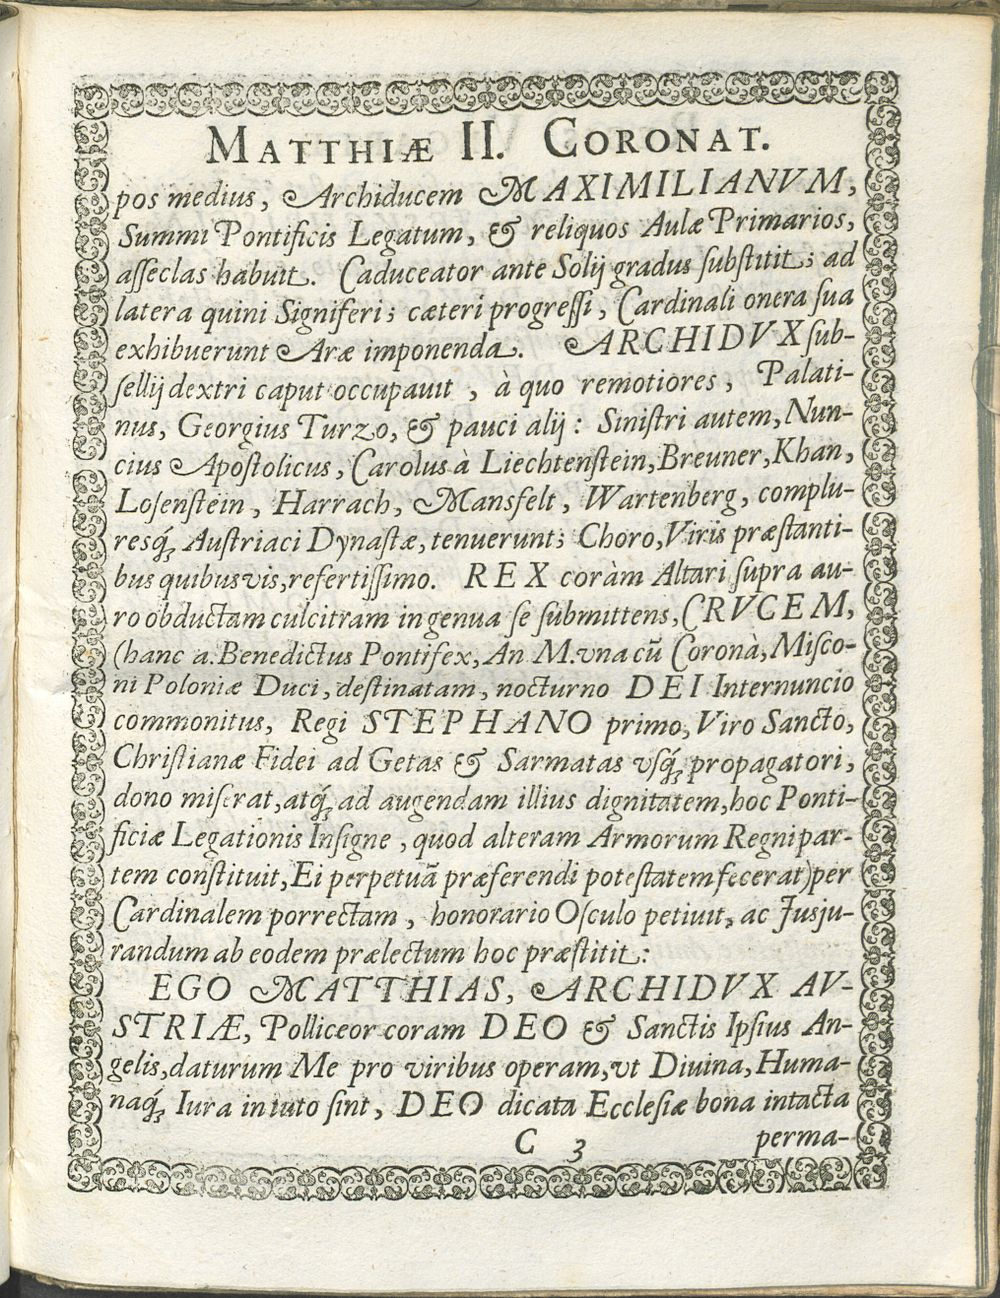 MATTHIÆ II. CORONAT.
pos medius, Archiducem MAXIMILIANVM,
Summi Pontificis Legatum, & reliquos Aulæ Primarios,
aſſeclas habuit. Caduceator ante Solij gradus ſubſtitit; ad
latera quini Signiferi; cæteri progreſſi, Cardinali onera ſua
exhibuerunt Aræ imponenda. ARCHIDVX ſub-
ſellij dextri caput occupauit, à quo remotiores, Palati-
nus, Georgius Turzo, & pauci alij: Siniſtri autem, Nun-
cius Apoſtolicus, Carolus à Liechtenſtein, Breuner, Khan,
Loſenſtein, Harrach, Mansfelt, Wartenberg, complu-
resq́; Auſtriaci Dynaſtæ, tenuerunt; Choro, Viris præſtanti-
bus quibusvis, refertiſſimo. REX coràm Altari ſupra au-
ro obductam culcitram in genua ſe ſubmittens, CRVCEM,
(hanc a. Benedictus Pontifex, An M. vna cũ Coronà, Miſco-
ni Poloniæ Duci, deſtinatam, nocturno DEI Internuncio
commonitus, Regi STEPHANO primo, Viro Sancto,
Chriſtianæ Fidei ad Getas & Sarmatas vſq́; propagatori,
dono miſerat, atq́; ad augendam illius dignitatem, hoc Ponti-
ficiæ Legationis Inſigne, quod alteram Armorum Regni par-
tem conſtituit, Ei perpetuã præferendi poteſtatem fecerat) per
Cardinalem porrectam, honorario Oſculo petiuit, ac Jusju-
randum ab eodem prælectum hoc præſtitit:
EGO MATTHIAS, ARCHIDVX AV-
STRIÆ, Polliceor coram DEO & Sanctis Ipſius An-
gelis, daturum Me pro viribus operam, vt Diuina, Huma-
naq́; Iura in tuto ſint, DEO dicata Eccleſiæ bona intacta
C 3 perma-